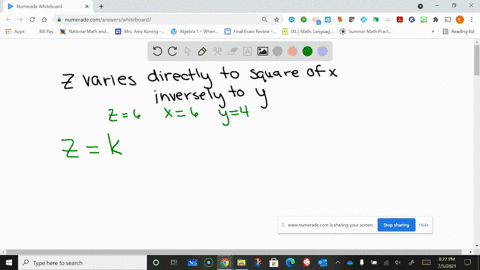 Numerade Whiteboard
numerade.com/answers/whiteboard/
Apps
Bill Pay
National Math and...
Mrs. Amy Koning -...
Algebra 1 – When...
Final Exam Review -...
Summer Math Pract...
Reading list
z varies directly to square of x
inversely to y
z=6 x=6 y=4
z = k
www.numerade.com is sharing your screen.
Stop sharing
Hide
Type here to search
8:27 PM
7/5/2021